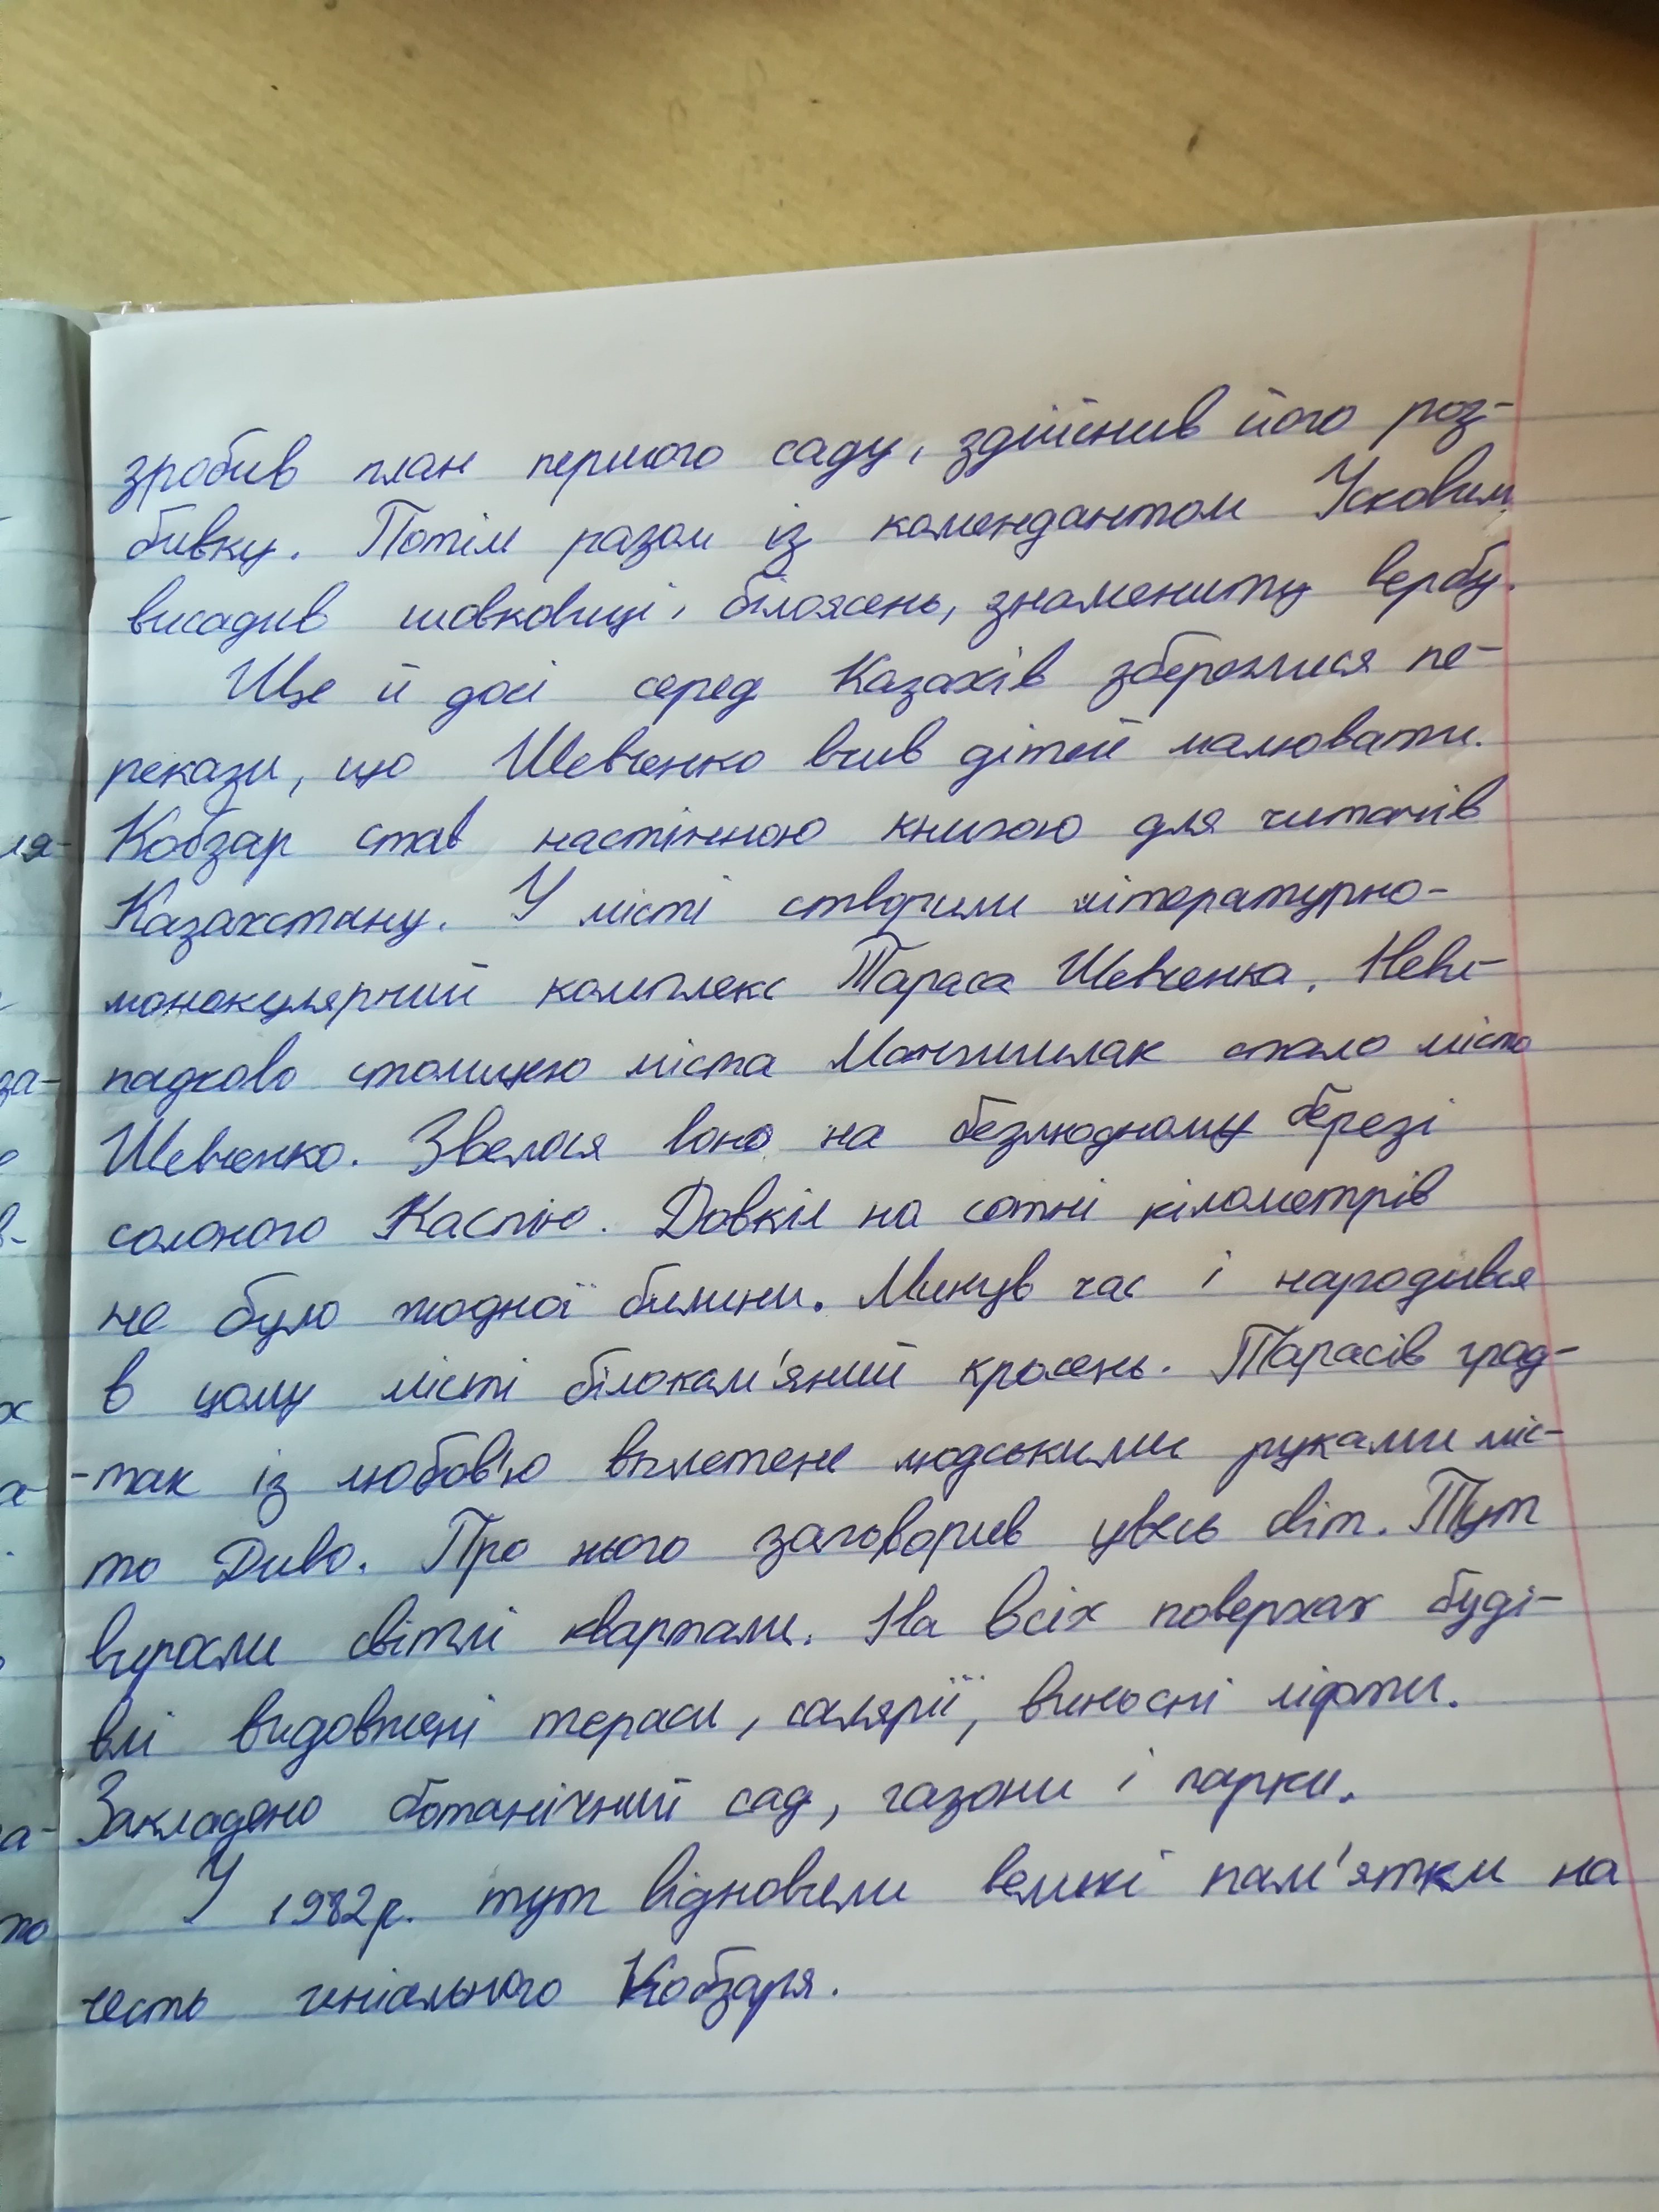 зробив план першого саду, здійснив його роз-
бивку. Потім разом із комендантом Усковим
висадив шовковиці, білоясень, знамениту вербу.
Ще й досі серед Казахів збереглися пе-
рекази, що Шевченко вчив дітей малювати.
Кобзар став настінною книгою для читачів
Казахстану. У місті створили літературно-
монокулярний комплекс Тараса Шевченка. Неви-
падково столицею міста Мангишлак стало місто
Шевченко. Звелося воно на безлюдному березі
солоного Каспію. Довкіл на сотні кілометрів
не було жодної билини. Минув час і народився
в цьому місті білокам'яний красень. Тарасів град-
-так із любов'ю виплетене людськими руками міс-
то Диво. Про нього заговорив увесь світ. Тут
виросли світлі квартали. На всіх поверхах буді-
влі видовжені тераси, солярії, виносні ліфти.
Закладено ботанічний сад, газони і парки.
У 1982р. тут відновили великі пам'ятки на
честь геніального Кобзаря.